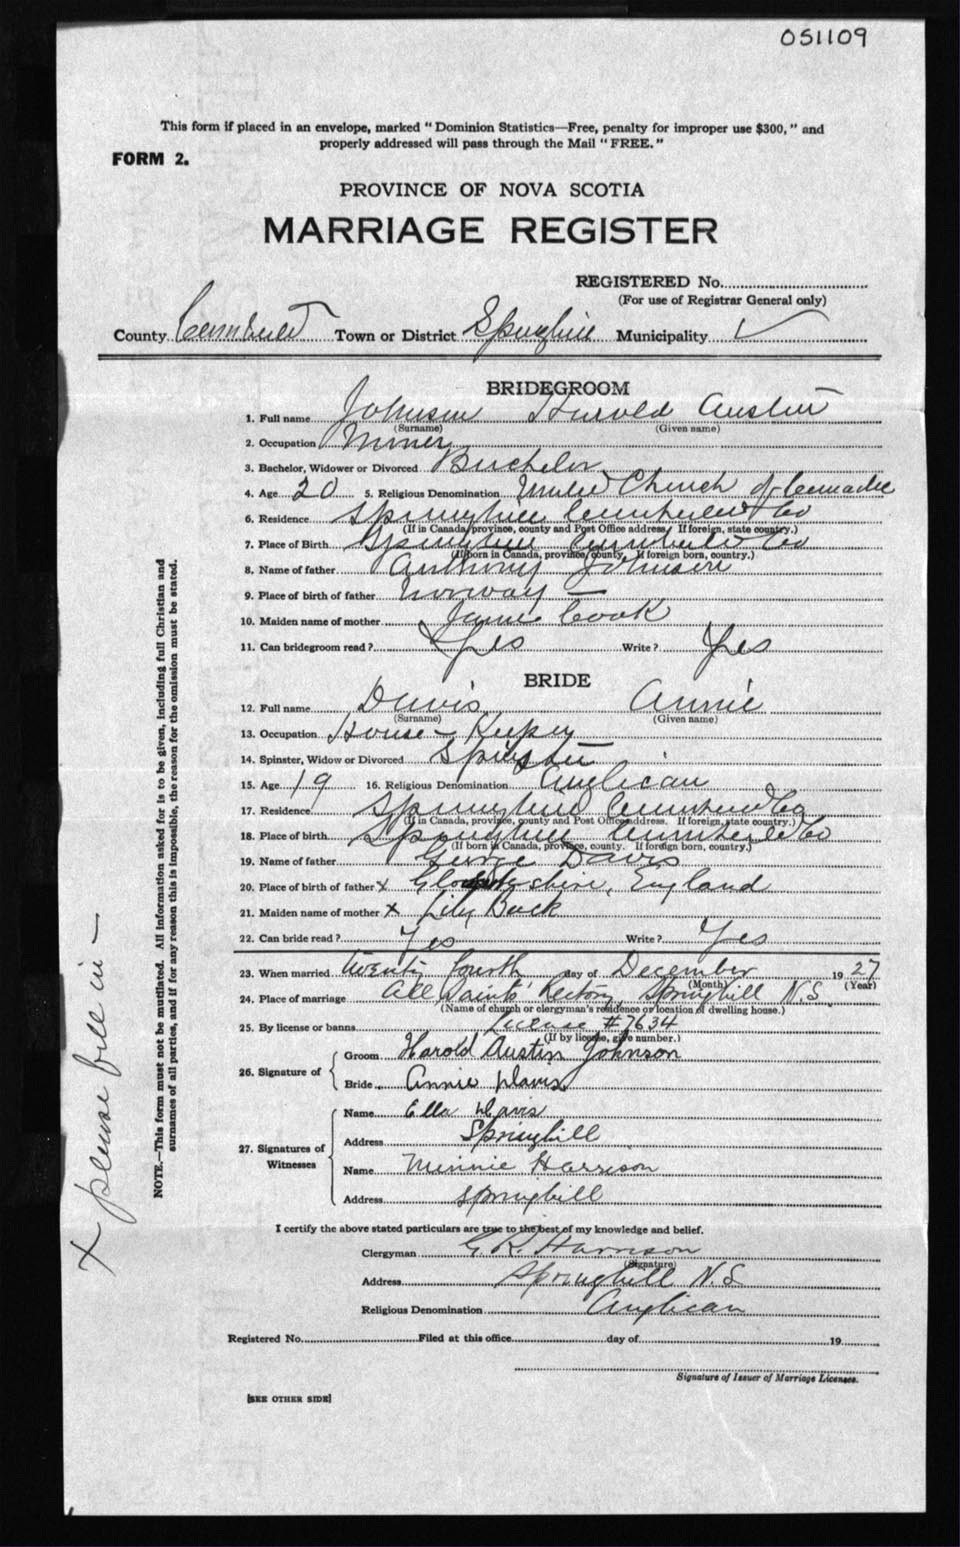 051109
This form if placed in an envelope, marked "Dominion Statistics—Free, penalty for improper use $300," and
properly addressed will pass through the Mail "FREE."
FORM 2.
PROVINCE OF NOVA SCOTIA
MARRIAGE REGISTER
REGISTERED No.
(For use of Registrar General only)
County Cumberld Town or District Springhill Municipality ✓
BRIDEGROOM
1. Full name Johnson Harold Austin
(Surname) (Given name)
2. Occupation Miner
3. Bachelor, Widower or Divorced Bachelor
4. Age 20 5. Religious Denomination United Church of Canada
6. Residence Springhill Cumberld Co
(If in Canada, province, county and Post Office address. If foreign, state country.)
7. Place of Birth Springhill Cumberld Co
(If born in Canada, province, county. If foreign born, country.)
8. Name of father Anthony Johnson
9. Place of birth of father Norway —
10. Maiden name of mother Jane Cook
11. Can bridegroom read? Yes Write? Yes
BRIDE
12. Full name Davis Annie
(Surname) (Given name)
13. Occupation House-Keeper
14. Spinster, Widow or Divorced Spinster
15. Age 19 16. Religious Denomination Anglican
17. Residence Springhill Cumberld Co
(If in Canada, province, county and Post Office address. If foreign, state country.)
18. Place of birth Springhill Cumberld Co
(If born in Canada, province, county. If foreign born, country.)
19. Name of father George Davis
20. Place of birth of father x England
21. Maiden name of mother x Lily Buck
22. Can bride read? Yes Write? Yes
23. When married twenty fourth day of December 1927
(Month) (Year)
24. Place of marriage All Saints' Rectory, Springhill N.S.
(Name of church or clergyman's residence or location of dwelling house.)
25. By license or banns License # 7634
(If by license, give number.)
26. Signature of
Groom Harold Austin Johnson
Bride Annie Davis
27. Signatures of Witnesses
Name Ella Davis
Address Springhill
Name Minnie Harrison
Address Springhill
I certify the above stated particulars are true to the best of my knowledge and belief.
Clergyman G. R. Harrison
(Signature)
Address Springhill N.S.
Religious Denomination Anglican
Registered No. Filed at this office day of 19
Signature of Issuer of Marriage Licenses.
[SEE OTHER SIDE]
NOTE.—This form must not be mutilated. All information asked for is to be given, including full Christian and
surnames of all parties, and if for any reason this is impossible, the reason for the omission must be stated.
x please fill in —